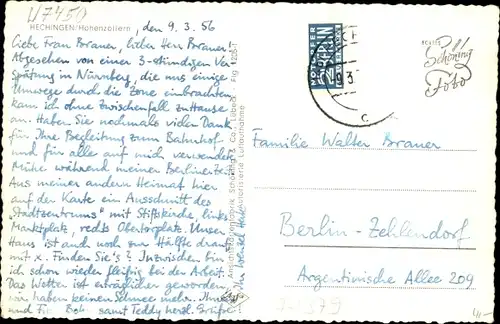 U7450
HECHINGEN/Hohenzollern
, den 9. 3. 56
Liebe Frau Brauer, lieber Herr Brauer!
Abgesehen von einer 3-stündigen Ver-
spätung in Nürnberg, die uns einige
Umwege durch die Zone einbrachten,
kam ich ohne Zwischenfall zu Hause
an. Haben Sie nochmals vielen Dank
für Ihre Begleitung zum Bahnhof
und für alle auf mich verwendete
Mühe während meiner Berliner Zeit.
Aus meiner anderen Heimat hier
auf der Karte ein Ausschnitt des
„Stadtzentrums" mit Stiftskirche, links
Marktplatz, rechts Obertorplatz. Unser
Haus ist auch noch zur Hälfte drauf
mit x. Finden Sie's? Inzwischen bin
ich schon wieder fleißig bei der Arbeit.
Das Wetter ist erträglicher geworden,
wir haben keinen Schnee mehr. Ihnen
und Fr. samt Teddy herzl. Grüße!
Schöning & Co., Lübeck
Luftaufnahme
NOTOPFER
2 BERLIN
STEUERMARKE
9.3
c
Schöning
Foto
Familie Walter Brauer
Berlin-Zehlendorf
Argentinische Allee 209